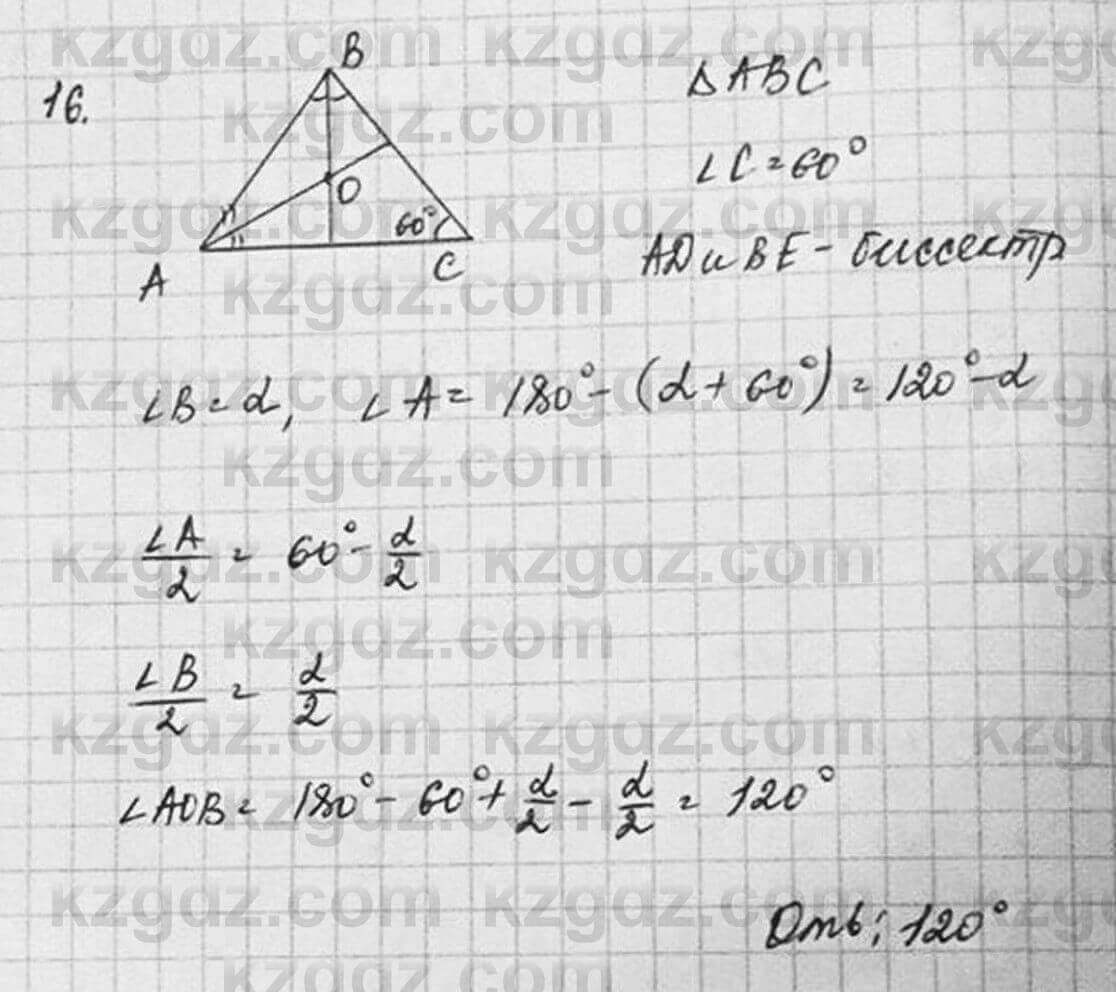 16.
B
O
60°
A
C
ΔABC
∠C = 60°
AD и BE - биссектр
∠B = α, ∠A = 180° - (α + 60°) = 120° - α
∠A/2 = 60° - α/2
∠B/2 = α/2
∠AOB = 180° - 60° + α/2 - α/2 = 120°
Отв: 120°
kzgdz.com